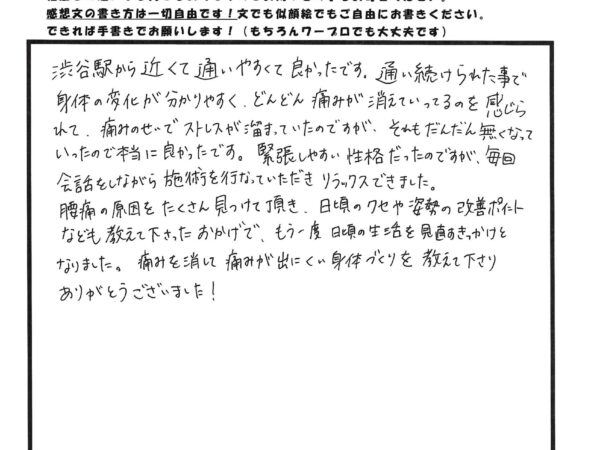 感想文の書き方は一切自由です！文でも似顔絵でもご自由にお書きください。
できれば手書きでお願いします！（もちろんワープロでも大丈夫です）
渋谷駅から近くて通いやすくて良かったです。通い続けられた事で
身体の変化が分かりやすく、どんどん痛みが消えていってるのを感じら
れて、痛みのせいでストレスが溜まっていたのですが、それもだんだん無くなって
いったので本当に良かったです。緊張しやすい性格だったのですが、毎回
会話をしながら施術を行なっていただきリラックスできました。
腰痛の原因をたくさん見つけて頂き、日頃のクセや姿勢の改善ポイント
なども教えて下さったおかげで、もう一度日頃の生活を見直すきっかけと
なりました。痛みを消して痛みが出にくい身体づくりを教えて下さり
ありがとうございました！